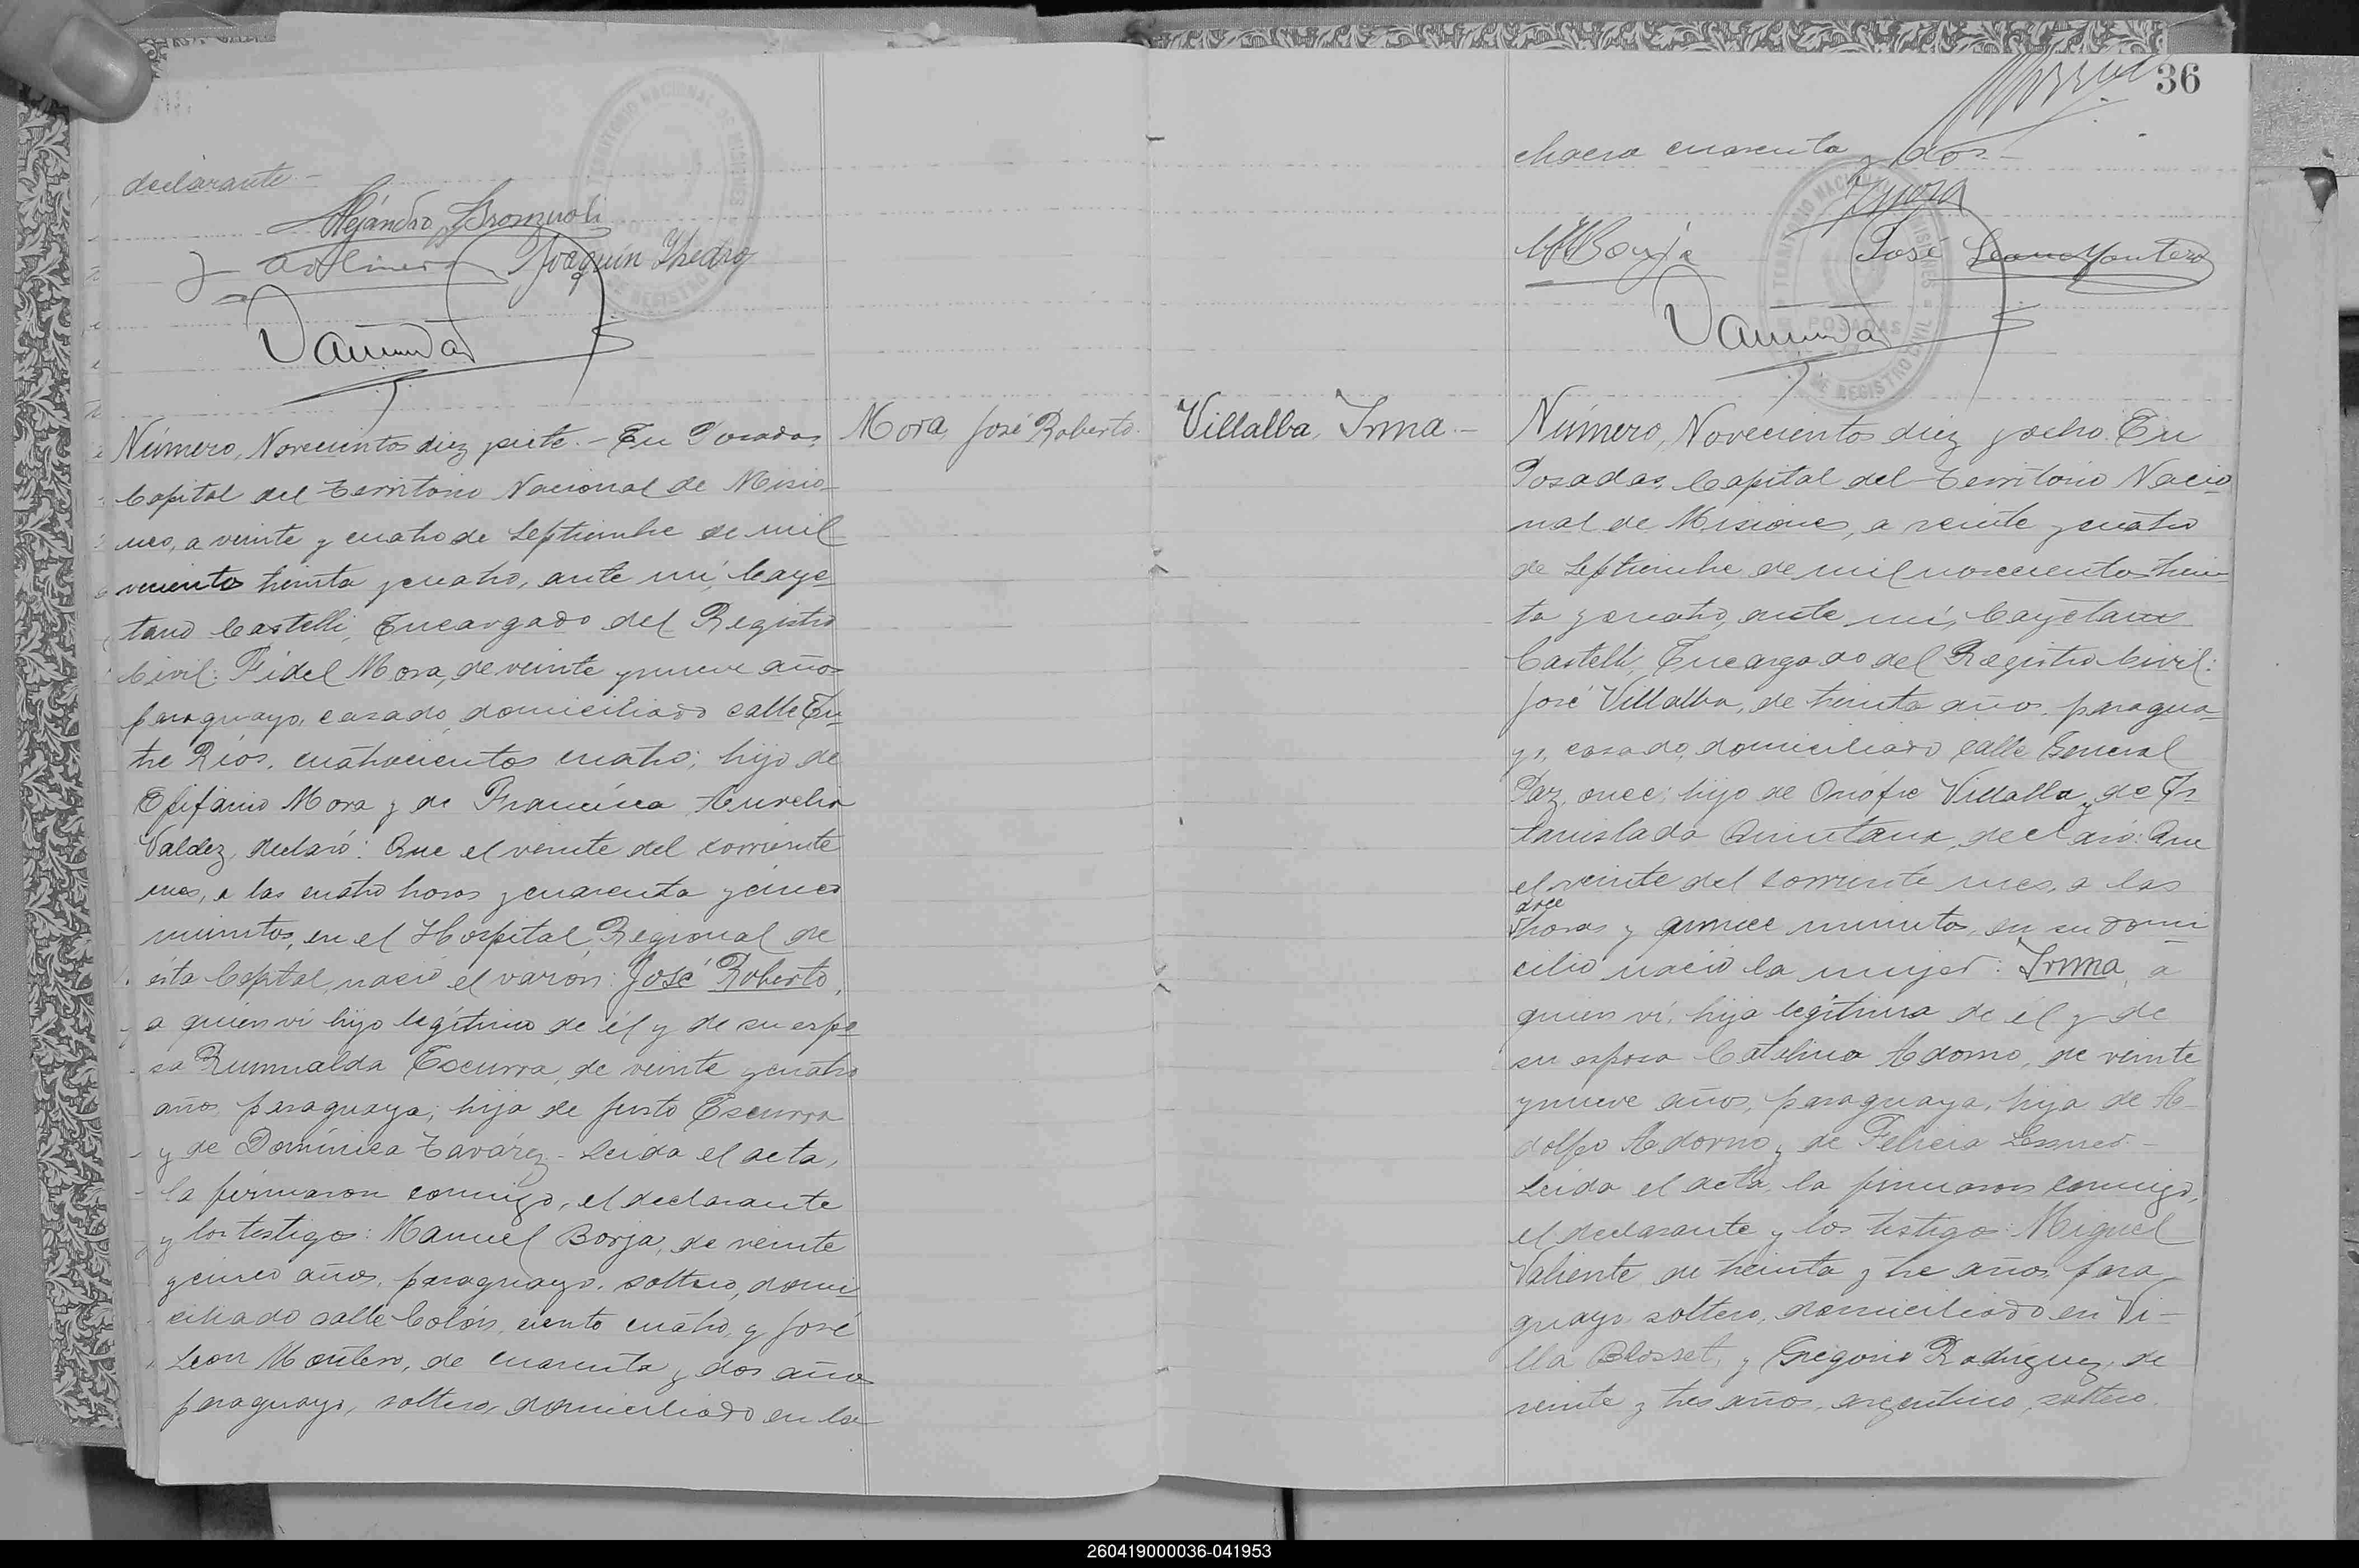 declarante.-
Alejandro
Joaquín
TERRITORIO NACIONAL DE MISIONES
Número, Novecientos diez y siete.- En Posadas,
Capital del Territorio Nacional de Misio-
nes, a veinte y cuatro de Septiembre de mil
vecientos treinta y cuatro, ante mí, Caye-
tano Castelli, Encargado del Registro
Civil: Fidel Mora, de veinte y nueve años
paraguayo, casado, domiciliado calle En-
tre Ríos, cuatrocientos cuatro; hijo de
Epifanio Mora y de Francisca Aurelia
Valdez, declaró: Que el veinte del corriente
mes, a las cuatro horas y cuarenta y cinco
minutos, en el Hospital Regional de
ésta Capital, nació el varón: José Roberto,
a quien ví hijo legítimo de él y de su espo-
sa Rumualda Escurra, de veinte y cuatro
años, paraguaya; hija de Justo Escurra
y de Domínica Tavárez.- Leída el acta,
la firmaron conmigo, el declarante
y los testigos: Manuel Borja, de veinte
y cinco años, paraguayo, soltero, domi-
ciliado calle Colón, ciento cuatro, y José
Leon Montero, de cuarenta y dos años
paraguayo, soltero, domiciliado en la
Mora, José Roberto.
Villalba, Irma.-
36
chacra cuarenta y dos.-
FMora
MBorja José Leon Montero
TERRITORIO NACIONAL MISIONES
POSADAS
DE REGISTRO CIVIL
Número, Novecientos diez y ocho. En
Posadas, Capital del Territorio Nacio-
nal de Misiones, a veinte y cuatro
de Septiembre de mil novecientos trein-
ta y cuatro, ante mí, Cayetano
Castelli, Encargado del Registro Civil:
José Villalba, de treinta años, paragua-
yo, casado, domiciliado calle General
Paz, once; hijo de Onófre Villalba y de Es-
tanislada Quintana, declaró: Que
el veinte del corriente mes, a las
doce
horas y quince minutos, en su domi-
cilio nació la mujer: Irma, a
quien ví, hija legítima de él y de
su esposa Catalina Adorno, de veinte
y nueve años, paraguaya, hija de A-
dolfo Adorno y de Felicia
Leída el acta, la firmaron conmigo,
el declarante y los testigos: Miguel
Valiente de treinta y tre años, para-
guayo soltero, domiciliado en Vi-
lla Blosset, y Gregorio Rodríguez, de
veinte y tres años, argentino, soltero.
260419000036-041953